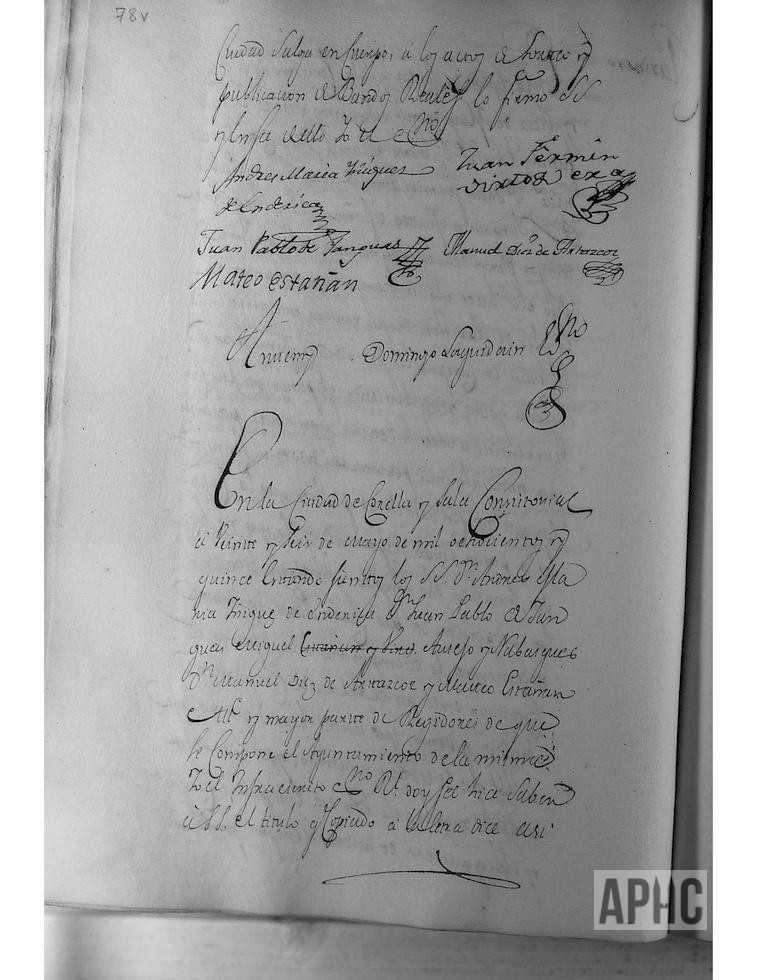 78v
Ciudad Salga en Cuerpo, a los actos de y
publicacion de Bandos Reales lo firmo SS
y Infe dello Yo el Esno
Andres Maria Yñiguez Juan Fermin
de Enderica
Juan Pablo de Yanguas Manuel Diez de Antarzcoz
Mateo estañan
Antemi Domingo Laquidain Esno
En la Ciudad de Corella y Sala Consistorial
a Veinte y Seis de Mayo de mil ochocientos y
quince Estando Juntos los SS. Dn Andres Ma
ria Yniguez de Enderica Dn Juan Pablo de Yan
guas Miguel Estañan y Virto Ausejo y Nabasques
Dn Manuel Diez de Antarzcoz y Mateo Estañan
Alle y mayor parte de Regidores de que
se Compone el Ayuntamiento de la misma
Yo el Infraescrito Esno Rl. doy feé hice Saber
à SS. el titulo q Copiado a la letra dice asi
APHC